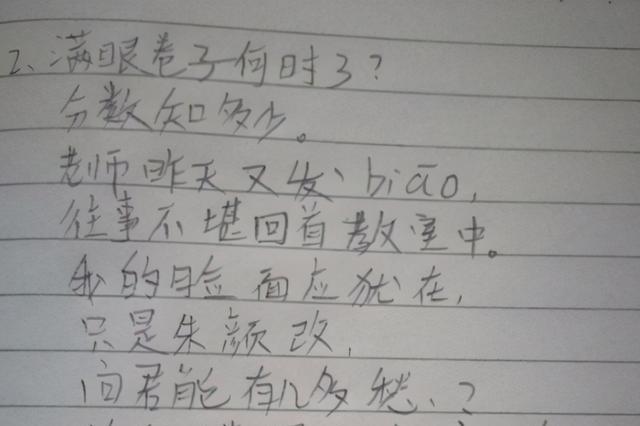 2、满眼卷子何时了?
分数知多少。
老师昨天又发biāo,
往事不堪回首教室中。
我的脸面应犹在,
只是朱颜改,
问君能有几多愁、?